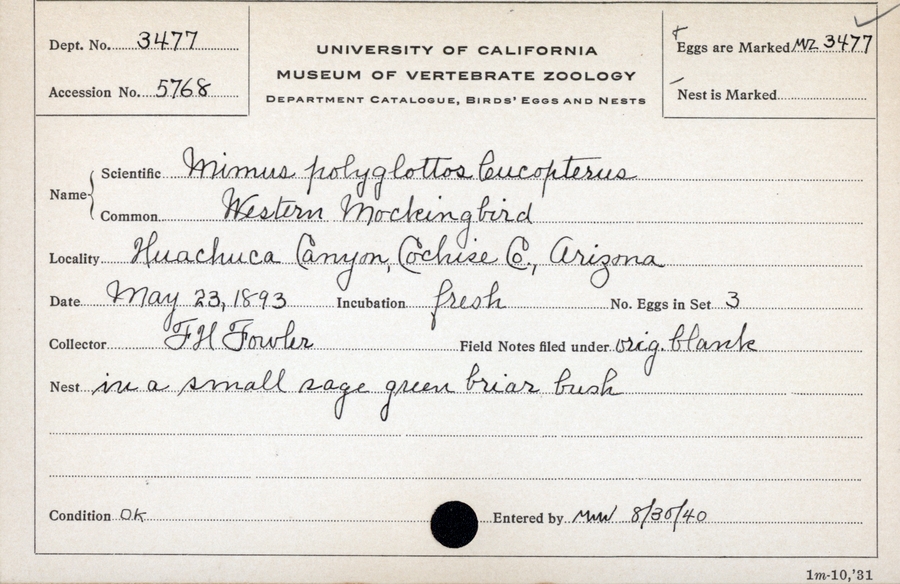 Dept. No. 3477
Accession No. 5768
UNIVERSITY OF CALIFORNIA
MUSEUM OF VERTEBRATE ZOOLOGY
DEPARTMENT CATALOGUE, BIRDS' EGGS AND NESTS
Eggs are Marked MZ 3477
Nest is Marked
Name
Scientific Mimus polyglottos leucopterus
Common Western Mockingbird
Locality Huachuca Canyon, Cochise Co., Arizona
Date May 23, 1893 Incubation fresh No. Eggs in Set 3
Collector FH Fowler Field Notes filed under orig. blank
Nest in a small sage green briar bush
Condition OK Entered by 8/30/40
1m-10,'31